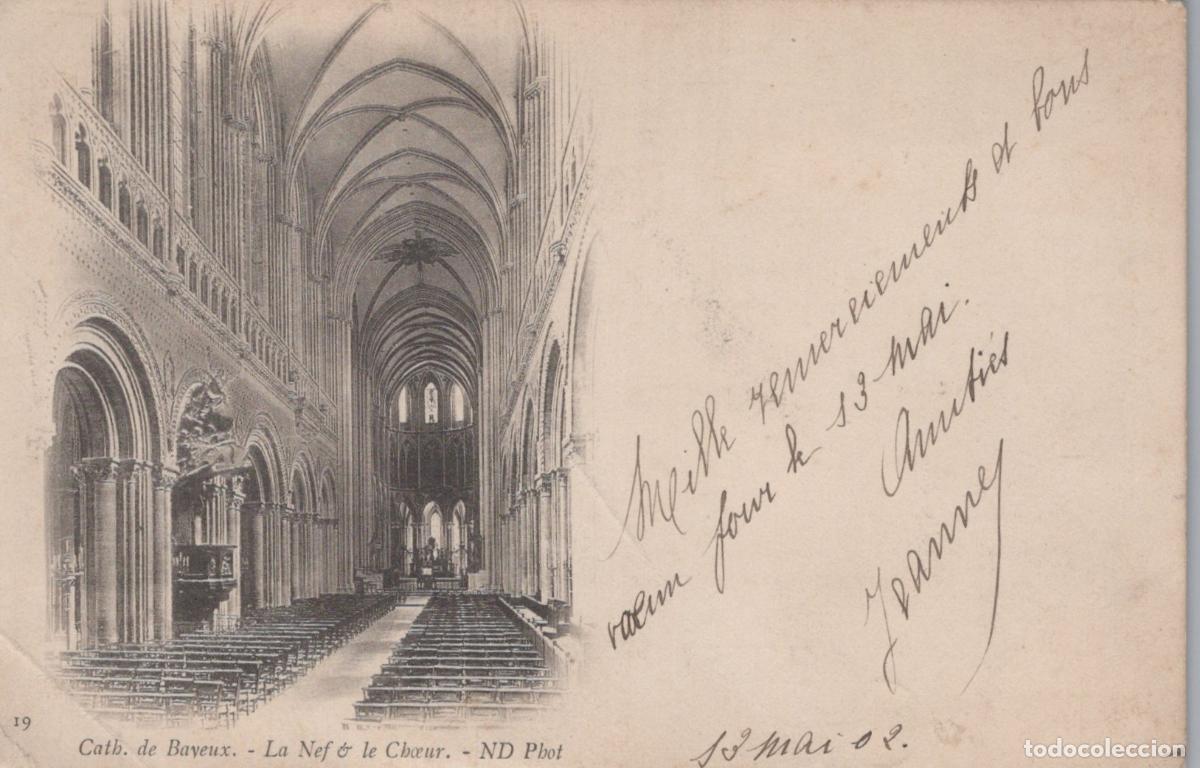 Mille remerciements et bons
vœux pour le 13 mai.
Amitiés
Jeanne
13 mai 02.
19
Cath. de Bayeux. - La Nef & le Chœur. - ND Phot
todocoleccion